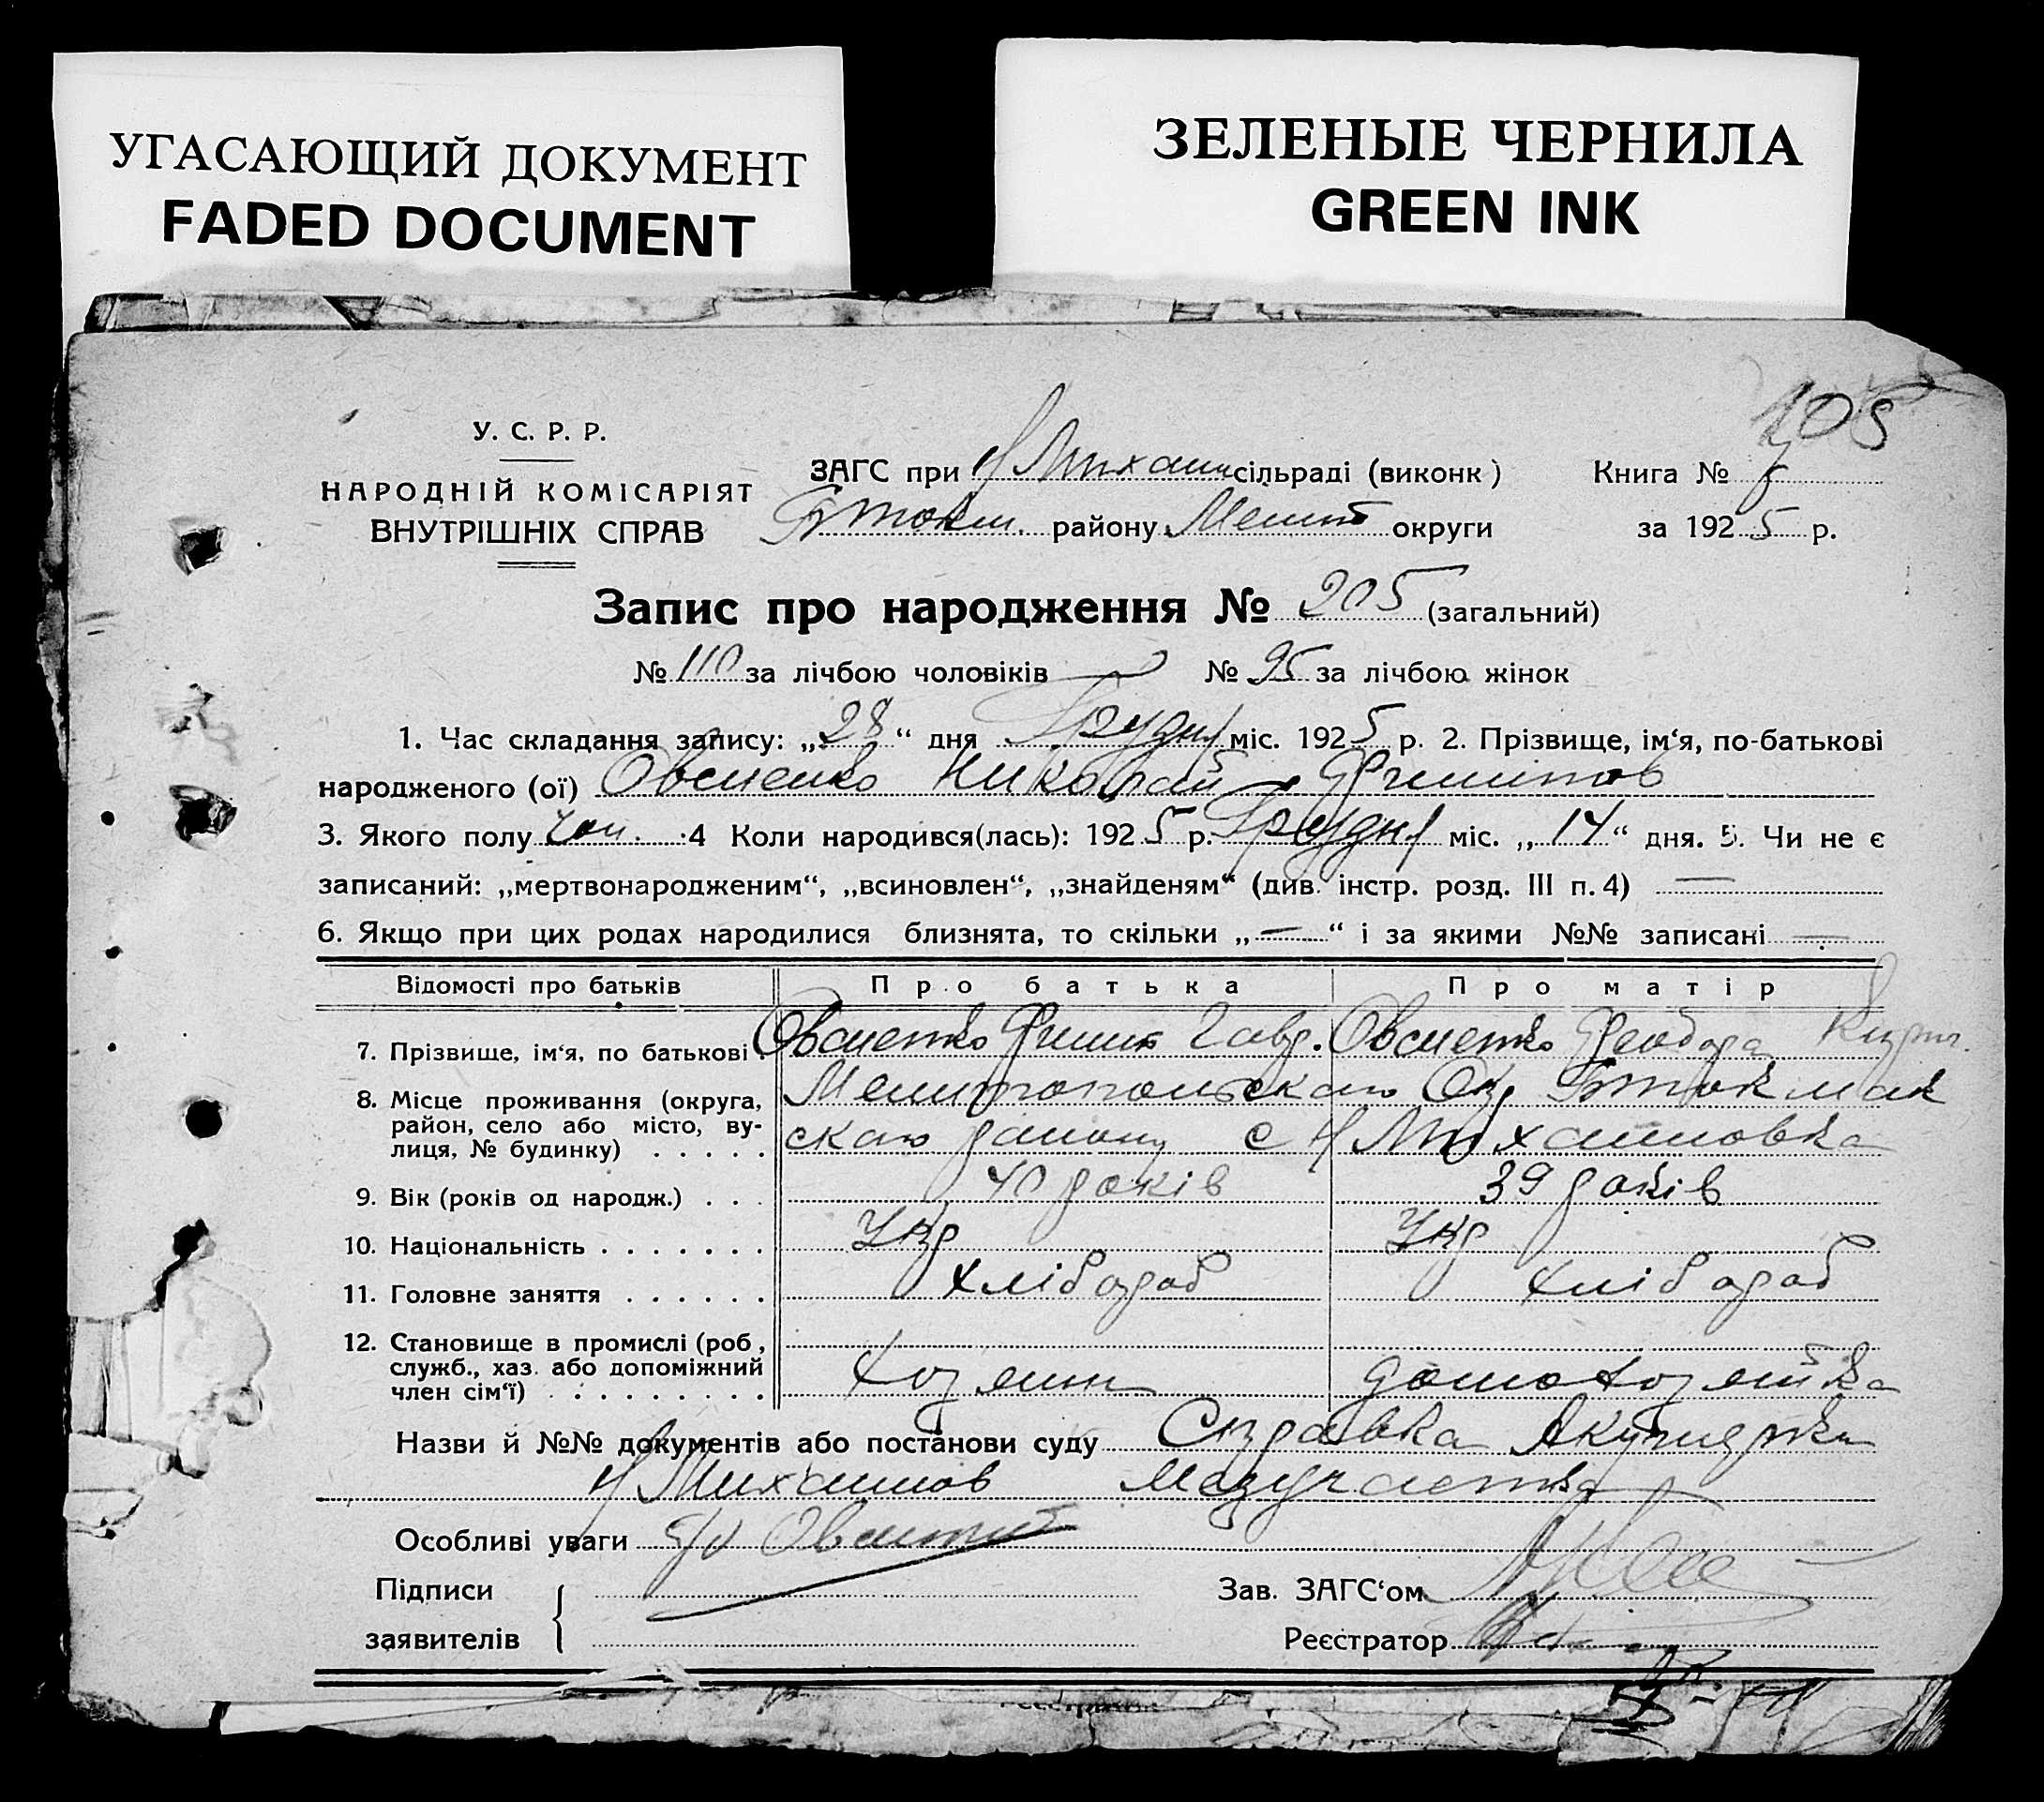 УГАСАЮЩИЙ ДОКУМЕНТ
FADED DOCUMENT
ЗЕЛЕНЫЕ ЧЕРНИЛА
GREEN INK
У. С. Р. Р.
НАРОДНІЙ КОМІСАРІЯТ
ВНУТРІШНІХ СПРАВ
ЗАГС при сільраді (виконк) Книга №
району округи за 1925 р.
Запис про народження № 205 (загальний)
№ 110 за лічбою чоловіків № 95 за лічбою жінок
1. Час складання запису: „28“ дня Грудня міс. 1925 р. 2. Прізвище, ім‘я, по-батькові
народженого (ої) Овсиенко Николай Филипов
3. Якого полу чол. 4 Коли народився(лась): 1925 р. Грудня міс. „14“ дня. 5. Чи не є
записаний: „мертвонародженим“, „всиновлен“, „знайденям“ (див. інстр. розд. III п. 4) —
6. Якщо при цих родах народилися близнята, то скільки „—“ і за якими №№ записані —
Відомості про батьків Про батька Про матір
7. Прізвище, ім‘я, по батькові Овсиенко Филип Гавр. Овсиенко Феодора Кирил.
8. Місце проживання (округа, район, село або місто, вулиця, № будинку) Мелитопольскаго Окр Бтокмак
скаго району с Н Михайловка
9. Вік (років од народж.) 40 років 39 років
10. Національність Укр Укр
11. Головне заняття хлібороб хлібороб
12. Становище в промислі (роб, служб., хаз. або допоміжний член сім‘ї) хозяин домохозяйка
Назви й №№ документів або постанови суду Справка Акушерки
Н Михайлов Медучастка
Особливі уваги
Підписи Зав. ЗАГС‘ом
заявителів Реєстратор